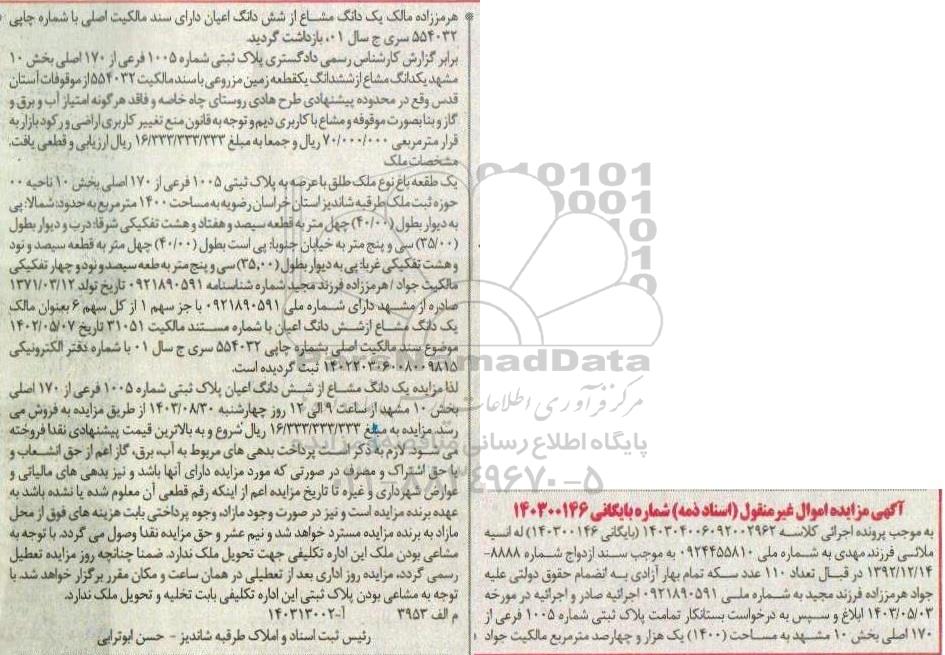 آگهی مزایده اموال غیرمنقول (اسناد ذمه) شماره بایگانی ۱۴۰۳۰۰۱۴۶
به موجب پرونده اجرائی کلاسه ۱۴۰۳۰۴۰۰۶۰۹۲۰۰۲۹۶۲ (بایگانی ۱۴۰۳۰۰۱۴۶) له انسیه
ملائی فرزند مهدی به شماره ملی ۰۹۲۴۴۵۵۸۱۰ به موجب سند ازدواج شماره ۸۸۸۸-
۱۳۹۲/۱۲/۱۴ در قبال تعداد ۱۱۰ عدد سکه تمام بهار آزادی به انضمام حقوق دولتی علیه
جواد هرمززاده فرزند مجید به شماره ملی ۰۹۲۱۸۹۰۵۹۱ اجرائیه صادر و اجرائیه در مورخه
۱۴۰۳/۰۵/۰۳ ابلاغ و سپس به درخواست بستانکار تمامت پلاک ثبتی شماره ۱۰۰۵ فرعی از
۱۷۰ اصلی بخش ۱۰ مشهد به مساحت (۱۴۰۰) یک هزار و چهارصد مترمربع مالکیت جواد
هرمززاده مالک یک دانگ مشاع از شش دانگ اعیان دارای سند مالکیت اصلی با شماره چاپی
۵۵۴۰۳۲ سری ج سال ۰۱، بازداشت گردید.
برابر گزارش کارشناس رسمی دادگستری پلاک ثبتی شماره ۱۰۰۵ فرعی از ۱۷۰ اصلی بخش ۱۰
مشهد یکدانگ مشاع از ششدانگ یکقطعه زمین مزروعی با سند مالکیت ۵۵۴۰۳۲ از موقوفات آستان
قدس وقع در محدوده پیشنهادی طرح هادی روستای چاه خاصه و فاقد هرگونه امتیاز آب و برق و
گاز و بنابصورت موقوفه و مشاع با کاربری دیم و توجه به قانون منع تغییر کاربری اراضی و رکود بازار به
قرار متر مربعی ۷۰/۰۰۰/۰۰۰ ریال و جمعا به مبلغ ۱۶/۳۳۳/۳۳۳/۳۳۳ ریال ارزیابی و قطعی یافت.
مشخصات ملک
یک طقعه باغ نوع ملک طلق با عرصه به پلاک ثبتی ۱۰۰۵ فرعی از ۱۷۰ اصلی بخش ۱۰ ناحیه ۰۰
حوزه ثبت ملک طرقبه شاندیز استان خراسان رضویه به مساحت ۱۴۰۰ مترمربع به حدود: شمالا: پی
به دیوار بطول (۴۰/۰۰) چهل متر به قطعه سیصد و هفتاد و هشت تفکیکی شرقا: درب و دیوار بطول
(۳۵/۰۰) سی و پنج متر به خیابان جنوبا: پی است بطول (۴۰/۰۰) چهل متر به قطعه سیصد و نود
و هشت تفکیکی غربا: پی به دیوار بطول (۳۵،۰۰) سی و پنج متر به طعه سیصد و نود و چهار تفکیکی
مالکیت جواد / هرمززاده فرزند مجید شماره شناسنامه ۰۹۲۱۸۹۰۵۹۱ تاریخ تولد ۱۳۷۱/۰۳/۱۲
صادره از مشهد دارای شماره ملی ۰۹۲۱۸۹۰۵۹۱ با جز سهم ۱ از کل سهم ۶ بعنوان مالک
یک دانگ مشاع ازشش دانگ اعیان با شماره مستند مالکیت ۳۱۰۵۱ تاریخ ۱۴۰۲/۰۵/۰۷
موضوع سند مالکیت اصلی بشماره چاپی ۵۵۴۰۳۲ سری ج سال ۰۱ با شماره دفتر الکترونیکی
۱۴۰۲۲۰۳۰۶۰۰۸۰۰۹۸۱۵ ثبت گردیده است.
لذا مزایده یک دانگ مشاع از شش دانگ اعیان پلاک ثبتی شماره ۱۰۰۵ فرعی از ۱۷۰ اصلی
بخش ۱۰ مشهد از ساعت ۹ الی ۱۲ روز چهارشنبه ۱۴۰۳/۰۸/۳۰ از طریق مزایده به فروش می
رسد. مزایده به مبلغ ۱۶/۳۳۳/۳۳۳/۳۳۳ ریال شروع و به بالاترین قیمت پیشنهادی نقدا فروخته
می شود. لازم به ذکر است پرداخت بدهی های مربوط به آب، برق، گاز اعم از حق انشعاب و
یا حق اشتراک و مصرف در صورتی که مورد مزایده دارای آنها باشد و نیز بدهی های مالیاتی و
عوارض شهرداری و غیره تا تاریخ مزایده اعم از اینکه رقم قطعی آن معلوم شده یا نشده باشد به
عهده برنده مزایده است و نیز در صورت وجود مازاد، وجوه پرداختی بابت هزینه های فوق از محل
مازاد به برنده مزایده مسترد خواهد شد و نیم عشر و حق مزایده نقدا وصول می گردد. با توجه به
مشاعی بودن ملک این اداره تکلیفی جهت تحویل ملک ندارد. ضمنا چنانچه روز مزایده تعطیل
رسمی گردد، مزایده روز اداری بعد از تعطیلی در همان ساعت و مکان مقرر برگزار خواهد شد. با
توجه به مشاعی بودن پلاک ثبتی این اداره تکلیفی بابت تخلیه و تحویل ملک ندارد.
م الف ۳۹۵۳ آ-۱۴۰۳۱۳۰۰۲
رئیس ثبت اسناد و املاک طرقبه شاندیز - حسن ابوترابی
ParsNamadData
مرکز فرآوری اطلاعات
پایگاه اطلاع رسانی مناقصه و مزایده
۰۲۱-۸۸۳۴۹۶۷۰-۵